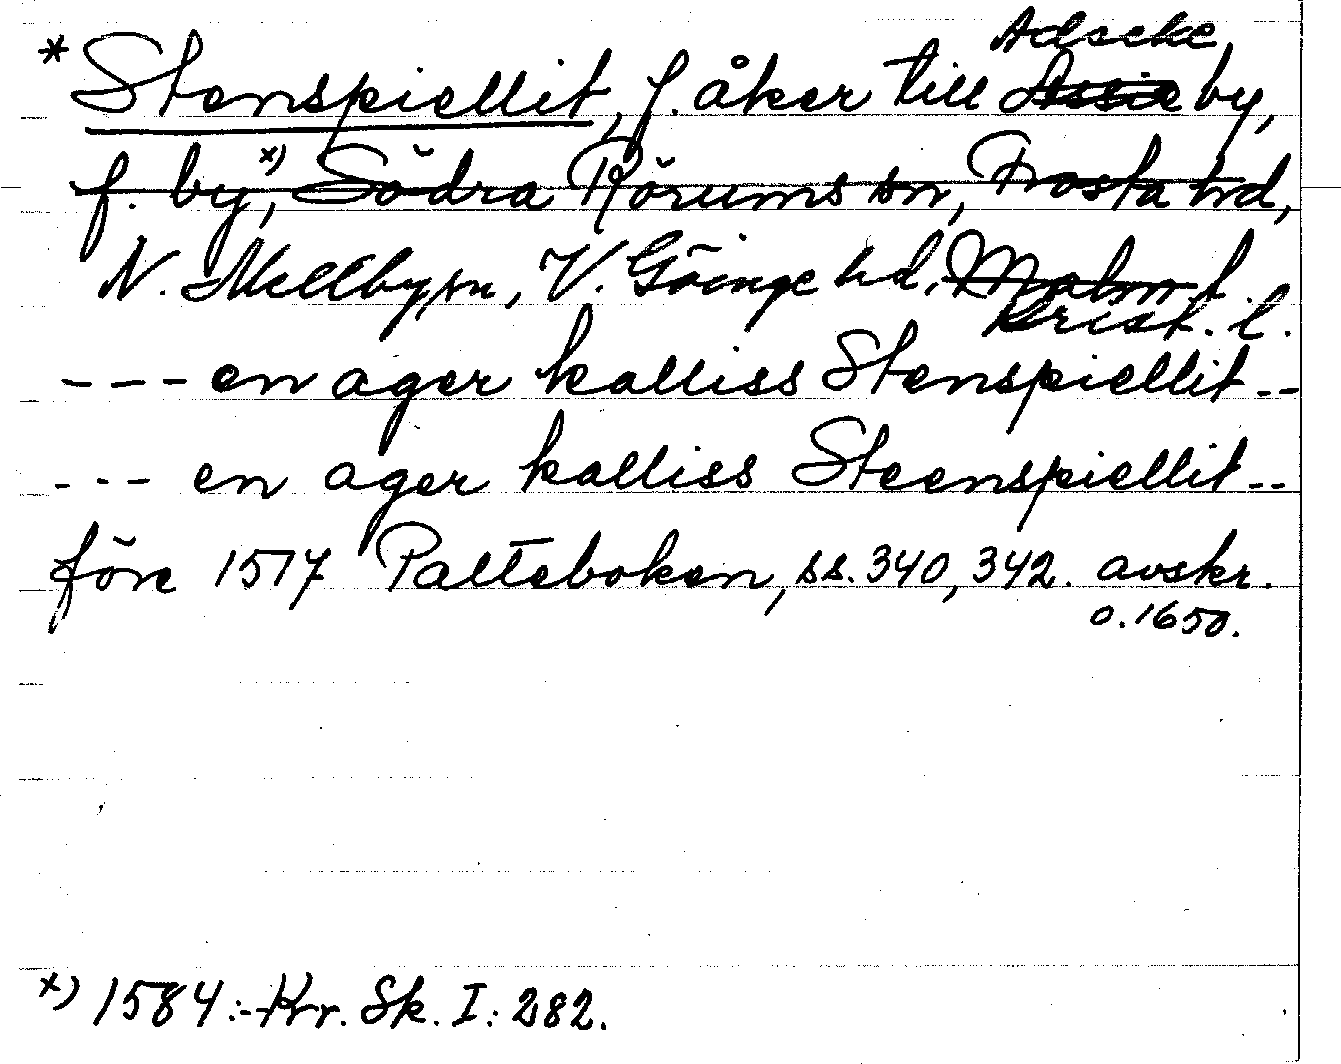 Adseke,
* Stenspiellit, f. åker till by,
f. by x), Södra Rörums sn, Frosta hd,
N. Mellby sn, V. Göinge hd, Malm. l.
Krist. l.
--- en ager kalliss Stenspiellit --
--- en ager kalliss Steenspiellit --
före 1517 Palteboken, ss. 340, 342. avskr.
o. 1650.
x) 1584:- Kr. Sk. I: 282.